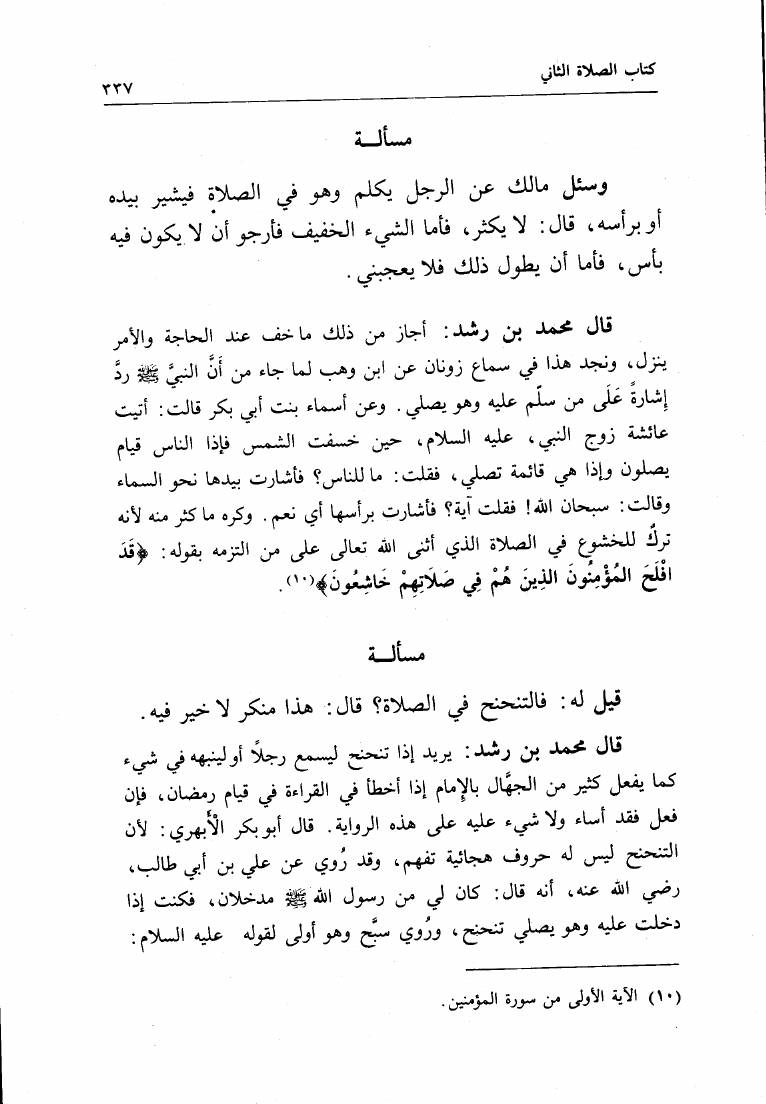 كتاب الصلاة الثاني
٣٣٧
مسألة
وسئل مالك عن الرجل يكلم وهو في الصلاة فيشير بيده
أو برأسه، قال: لا يكثر، فأما الشيء الخفيف فأرجو أن لا يكون فيه
بأس، فأما أن يطول ذلك فلا يعجبني.
قال محمد بن رشد: أجاز من ذلك ما خف عند الحاجة والأمر
ينزل، ونجد هذا في سماع زونان عن ابن وهب لما جاء من أَنَّ النبيَّ ﷺ ردَّ
إشارةً عَلَى من سلّم عليه وهو يصلي. وعن أسماء بنت أبي بكر قالت: أتيت
عائشة زوج النبي، عليه السلام، حين خسفت الشمس فإذا الناس قيام
يصلون وإذا هي قائمة تصلي، فقلت: ما للناس؟ فأشارت بيدها نحو السماء
وقالت: سبحان الله! فقلت آية؟ فأشارت برأسها أي نعم. وكره ما كثر منه لأنه
تركٌ للخشوع في الصلاة الذي أثنى الله تعالى على من التزمه بقوله: ﴿قَدَ
افْلَحَ المُؤْمِنُونَ الذِينَ هُمْ فِي صَلَاتِهِمْ خَاشِعُونَ﴾(١٠).
مسألة
قيل له: فالتنحنح في الصلاة؟ قال: هذا منكر لا خير فيه.
قال محمد بن رشد: يريد إذا تنحنح ليسمع رجلاً أو لينبهه في شيء
كما يفعل كثير من الجهَّال بالإمام إذا أخطأ في القراءة في قيام رمضان، فإن
فعل فقد أساء ولا شيء عليه على هذه الرواية. قال أبو بكر الأَبهري: لأن
التنحنح ليس له حروف هجائية تفهم، وقد رُوي عن علي بن أبي طالب،
رضي الله عنه، أنه قال: كان لي من رسول الله ﷺ مدخلان، فكنت إذا
دخلت عليه وهو يصلي تنحنح، ورُوي سبَّح وهو أولى لقوله عليه السلام:
(١٠) الآية الأولى من سورة المؤمنين.